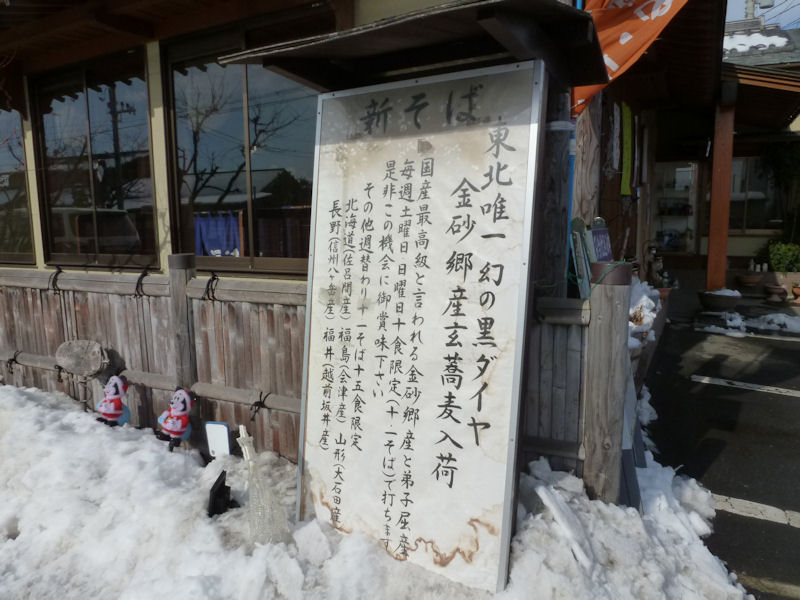 新そば
東北唯一幻の黒ダイヤ
金砂郷産玄蕎麦入荷
国産最高級と言われる金砂郷産と弟子屈産
毎週土曜日日曜日十食限定(十一そば)で打ちます
是非この機会に御賞味下さい
その他週替わり十一そば十五食限定
北海道(佐呂間産)福島(会津産)山形(大石田産)
長野(信州八ヶ岳産)福井(越前坂井産)